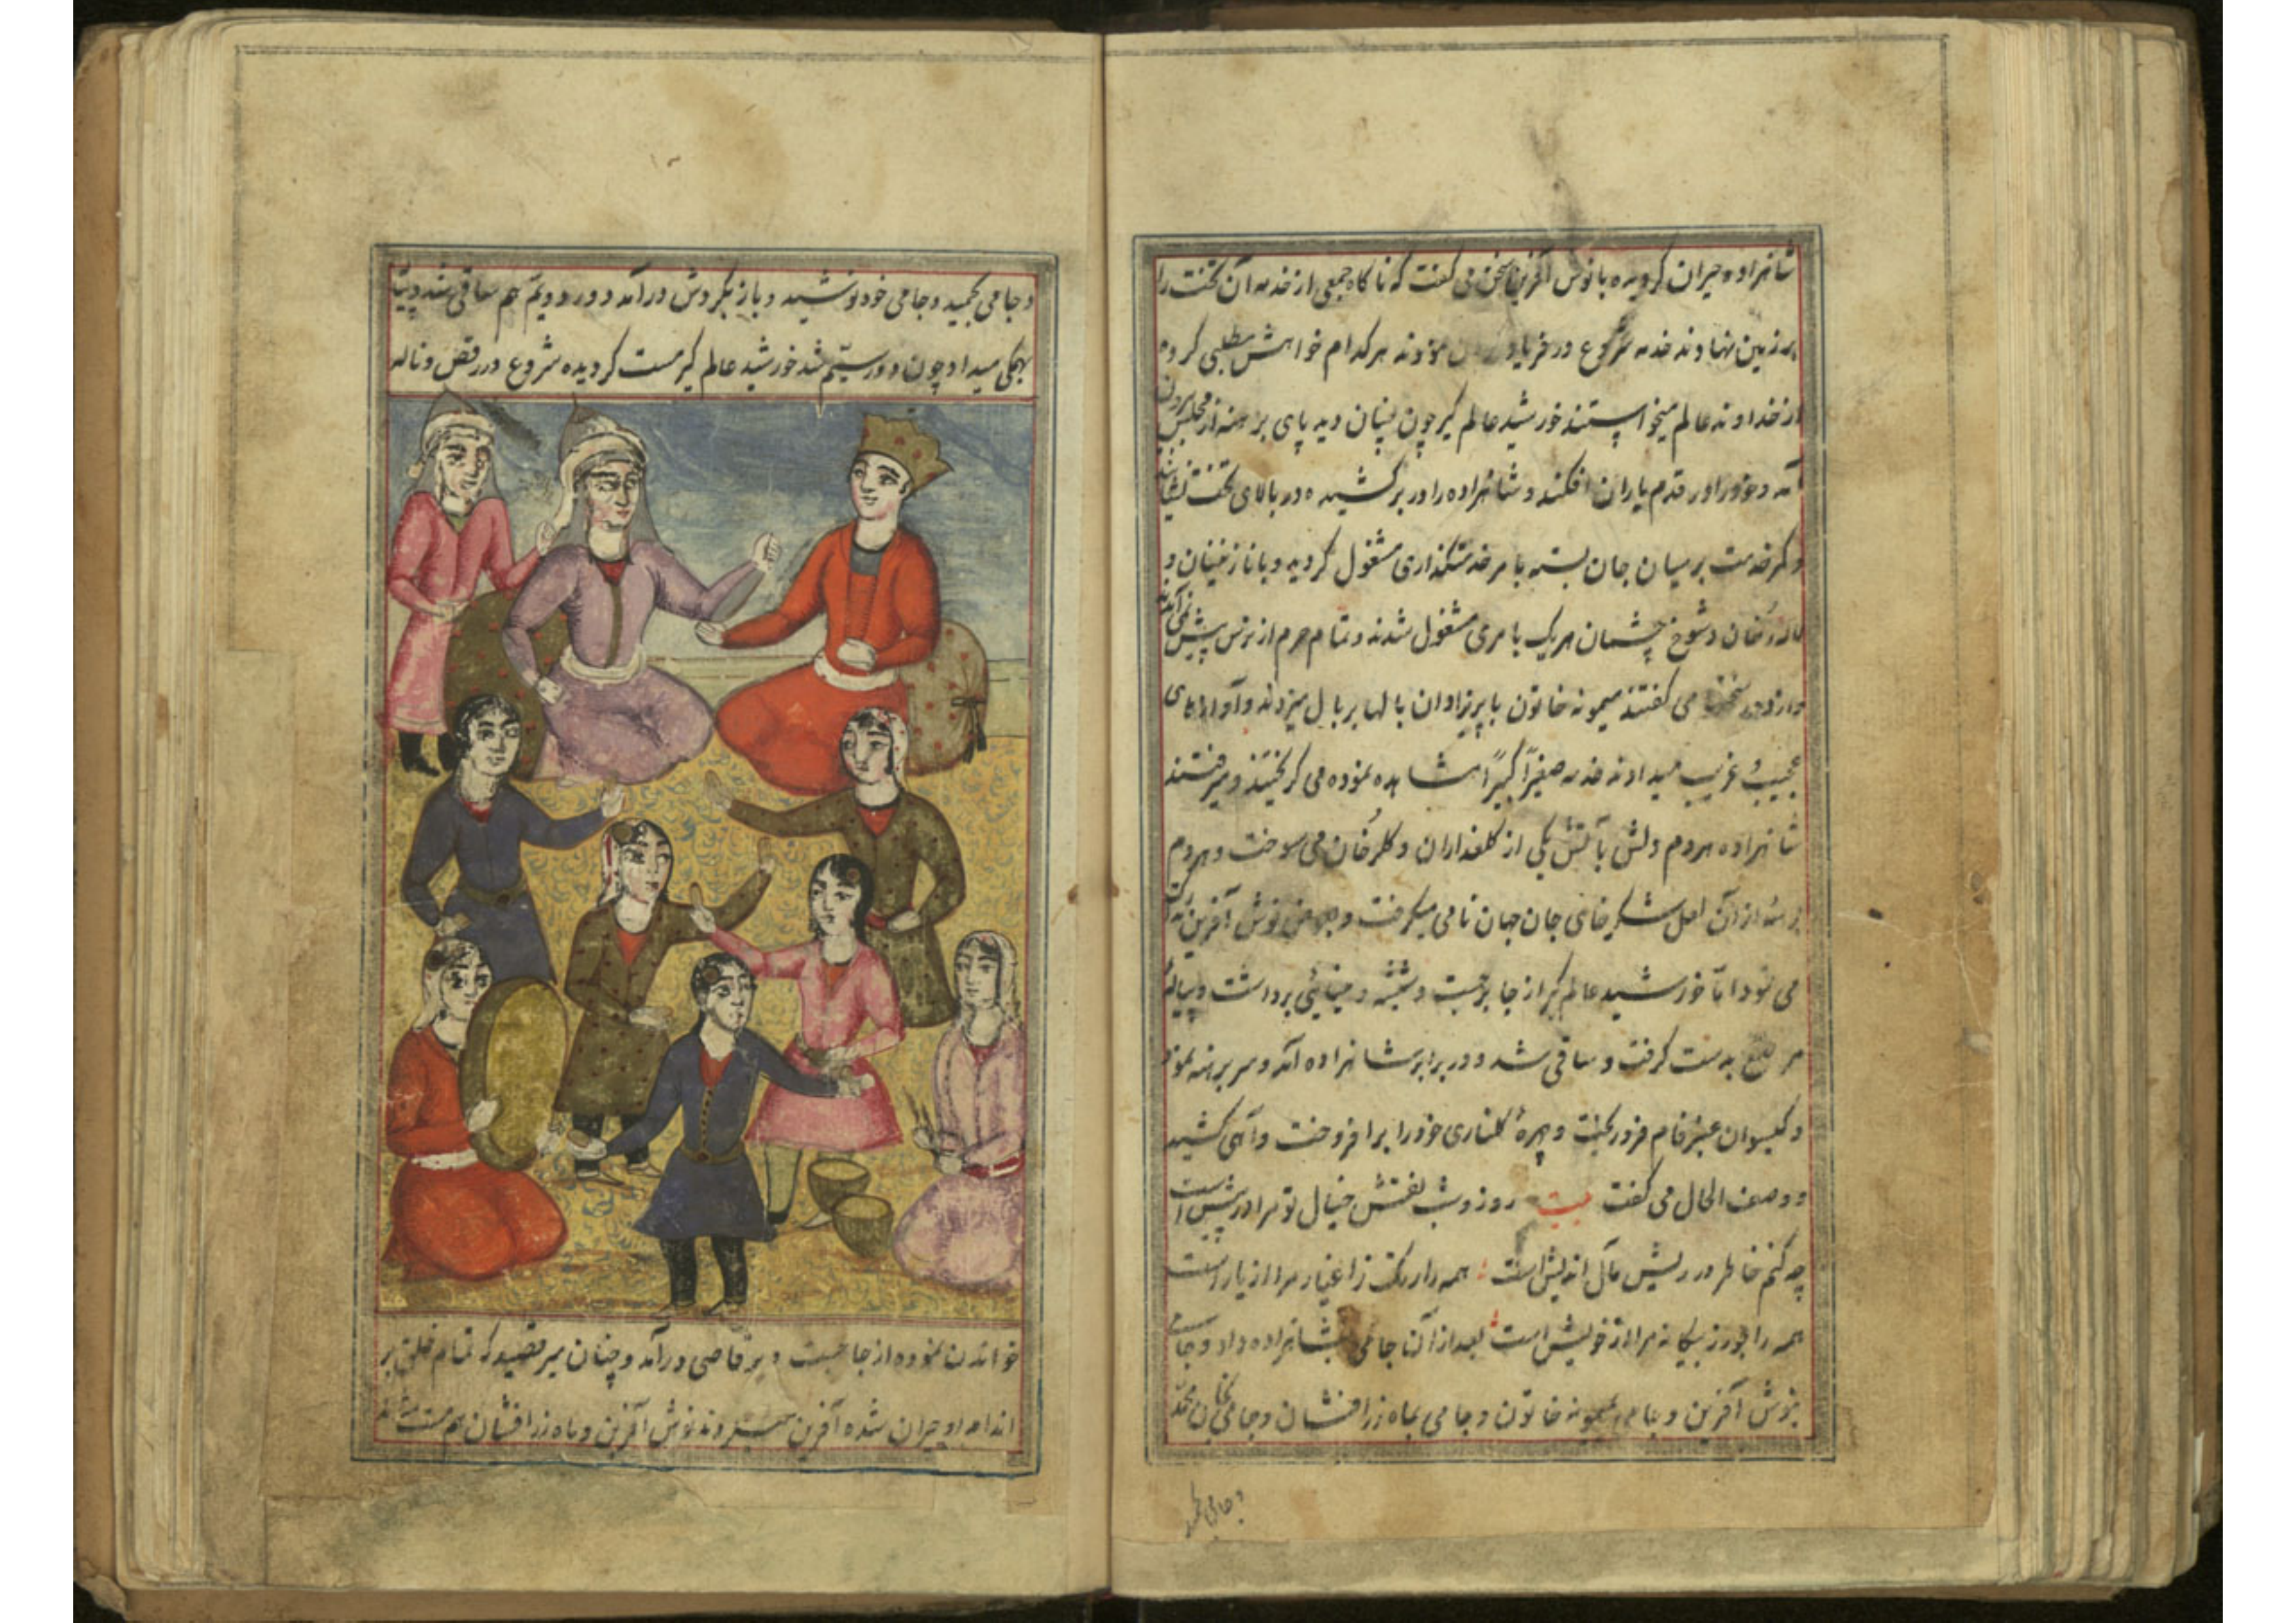 شاهزاده حیران گردیده با نوش آفرین سخن می گفت که ناگاه جمعی از خدمه آن تخت را
بزمین نهادند خدمه شروع در فریاد نمودند هرکدام خواهش مطلبی کرده
از خداوند عالم میخواستند خورشید عالم گیر چون چنان دید پای برهنه از مجلس بیرون
آمد و خود را در قدم یاران افکند و شاهزاده را در بر کشیده در بالای تخت نشاند
و کمر خدمت بر میان جان بسته بامر خدمتگذاری مشغول گردید و با نازنینان و
لاله رخان و شوخ چشمان هریک بامری مشغول شدند و تمام حرم از ترس پیش نمی آمدند
و از دور سخن می گفتند میمونه خاتون با پریزادان بالها بر بال میزدند و آوازهای
عجیب و غریب میدادند خدمه صغیراً کبیراً مشاهده نموده می گریختند و میرفتند
شاهزاده هردم دلش بآتش یکی از گلعذاران و گلرخان می سوخت و هردم
از آن لعل شکرخای جان جهان نامی میگرفت و نوش آفرین
می نمود اما خورشید عالم گیر از جا برجست و شیشه و مینائی برداشت و پیاله
مرصع بدست گرفت و ساقی شد و در برابر شاهزاده آمد و سر برهنه نمود
و گیسوان عنبرفام فرو ریخت و چهرهٔ گلناری خود را برافروخت و آهی کشید
و وصف الحال می گفت بیت روز و شب نقش خیال تو مرا در پیش است
چه کنم خاطر درویش مآل اندیش است همه را رنگ ز اغیار مرا از یار است
همه را جور ز بیگانه مرا از خویش است بعد از آن جامی بشاهزاده داد و جامی
بنوش آفرین و جامی بمیمونه خاتون و جامی بماه زرافشان و جامی
و جامی بحمید
و جامی بحمید و جامی خود نوشید و باز بگردش درآمد دور دویّم هم ساقی شد و پیاپی
بهمگی میداد چون دور سیّم شد خورشید عالم گیر مست گردیده شروع در رقص و ناله
خواندن نموده از جا جست و برقاصی درآمد و چنان میرقصید که تمام خلق بر
اندام او حیران شده آفرین میکردند نوش آفرین و ماه زرافشان هم مست شدند